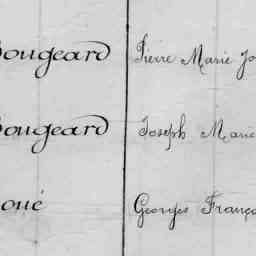 Bougeard Pierre Marie Jo
Bougeard Joseph Marie
oué Georges Franço